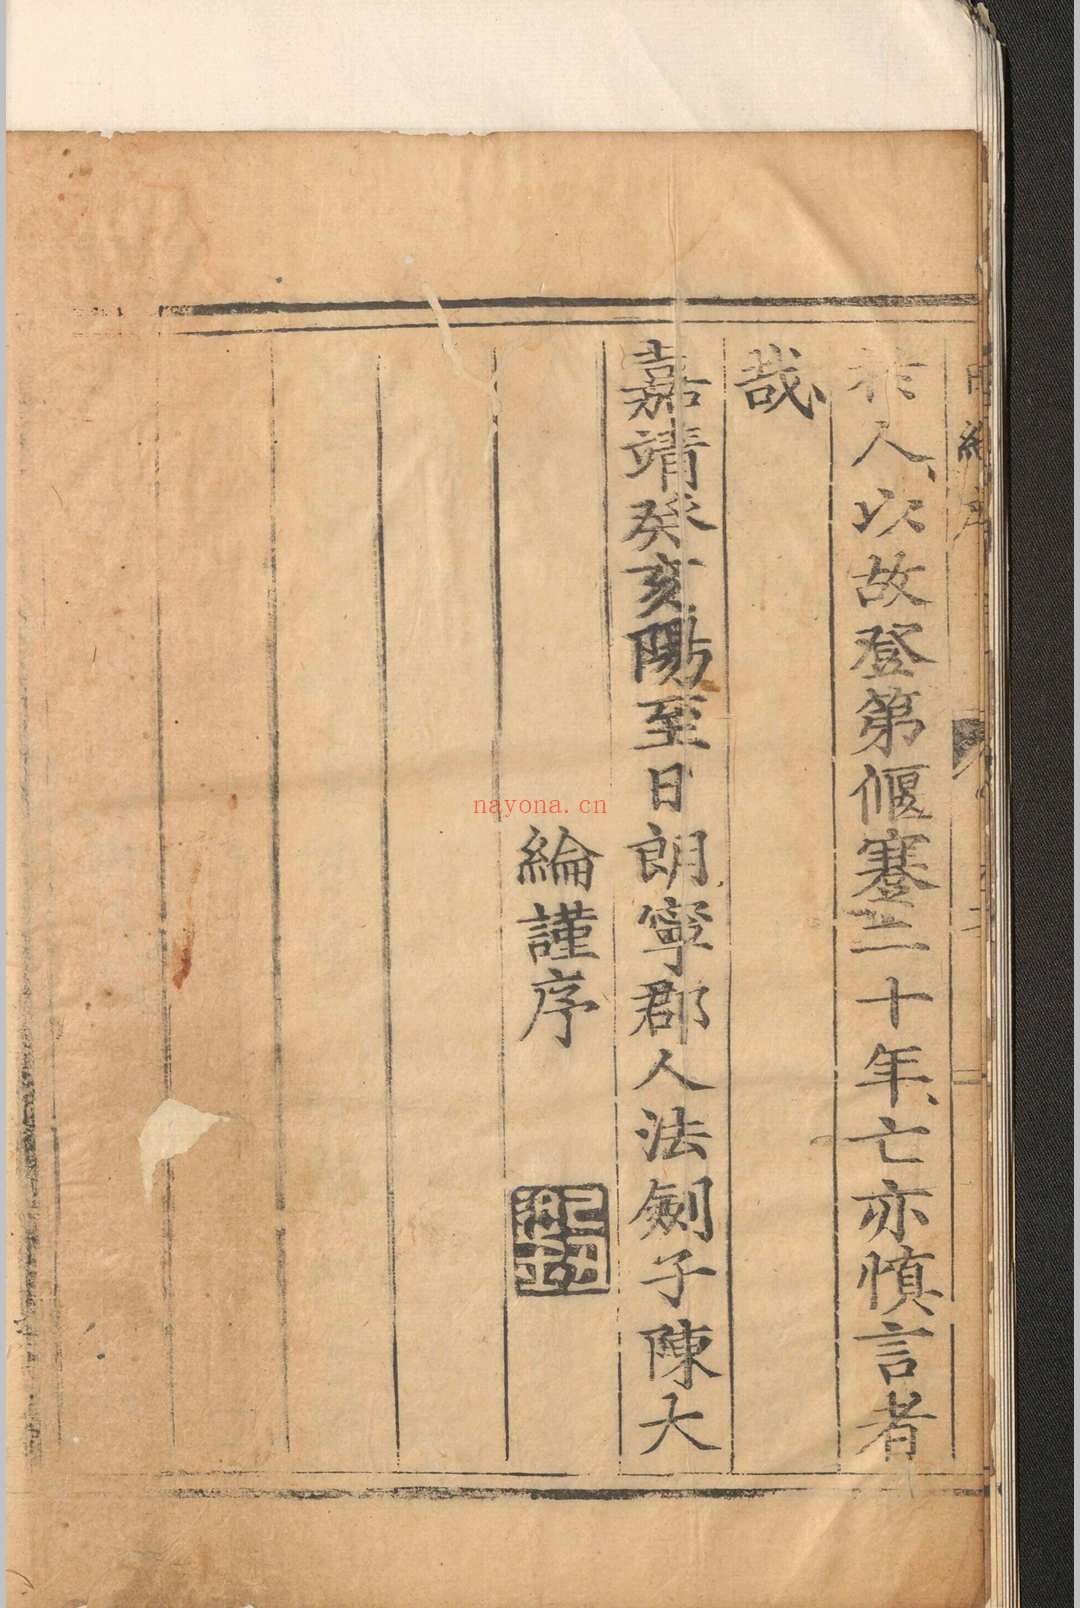 於人、以故登第偃蹇二十年、亡亦慎言者
哉、
嘉靖癸亥陽至日朗寧郡人法劒子陳大
綸謹序
nayona.cn